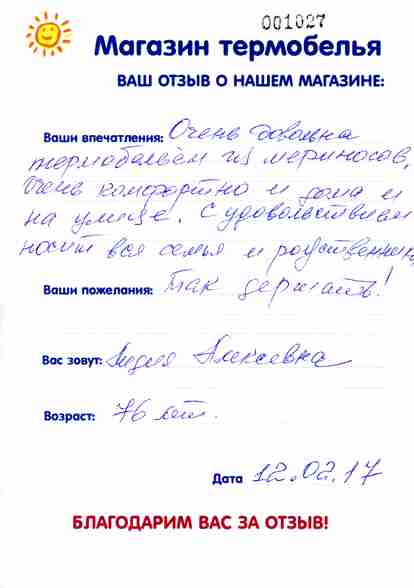 001027
Магазин термобелья
ВАШ ОТЗЫВ О НАШЕМ МАГАЗИНЕ:
Ваши впечатления: Очень довольна
термобельём из мериносов,
Очень комфортно и дома и
на улице. С удовольствием
носит вся семья и родственники
Ваши пожелания: Так держать!
Вас зовут: Лидия Алексевна
Возраст: 76 лет.
Дата 12.02.17
БЛАГОДАРИМ ВАС ЗА ОТЗЫВ!